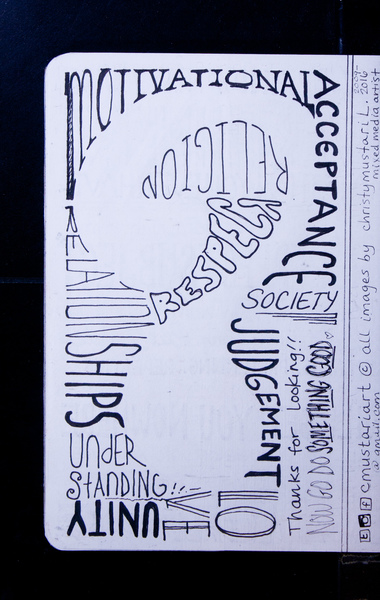 MOTIVATIONAL
ACCEPTANCE
RELIGION
RELIG
RESPECT
SOCIETY
RELATIONSHIPS
JUDGEMENT
UNDER
STANDING!!
UNITY
LO
VE
Thanks for looking!!
NOW GO DO SOMETHING GOOD
cmustariart © all images by christymustari L. 2009-
2016
@gmail.com
mixed media artist